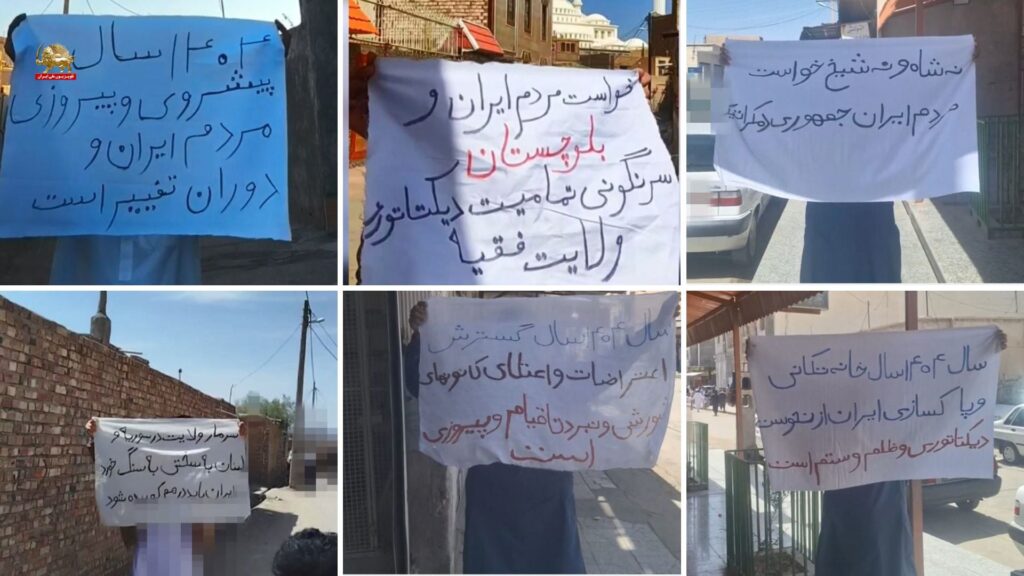 ۱۴۰۴ سال
پیشروی و پیروزی
مردم ایران و
دوران تغییر است
خواست مردم ایران و
بلوچستان
سرنگونی تمامیت دیکتاتوری
ولایت فقیه
نه شاه و نه شیخ خواست
مردم ایران جمهوری دمکراتیک
سر مار ولایت در سوریه و
لبنان با سنگ خورد
ایران باید در هم کوبیده شود
سال ۱۴۰۴ سال گسترش
اعتراضات و اعتلای کانونهای
شورشی و نبرد تا قیام و پیروزی
است
سال ۱۴۰۴ سال خانه تکانی
و پاکسازی ایران از نحوست
دیکتاتوری و ظلم و ستم است